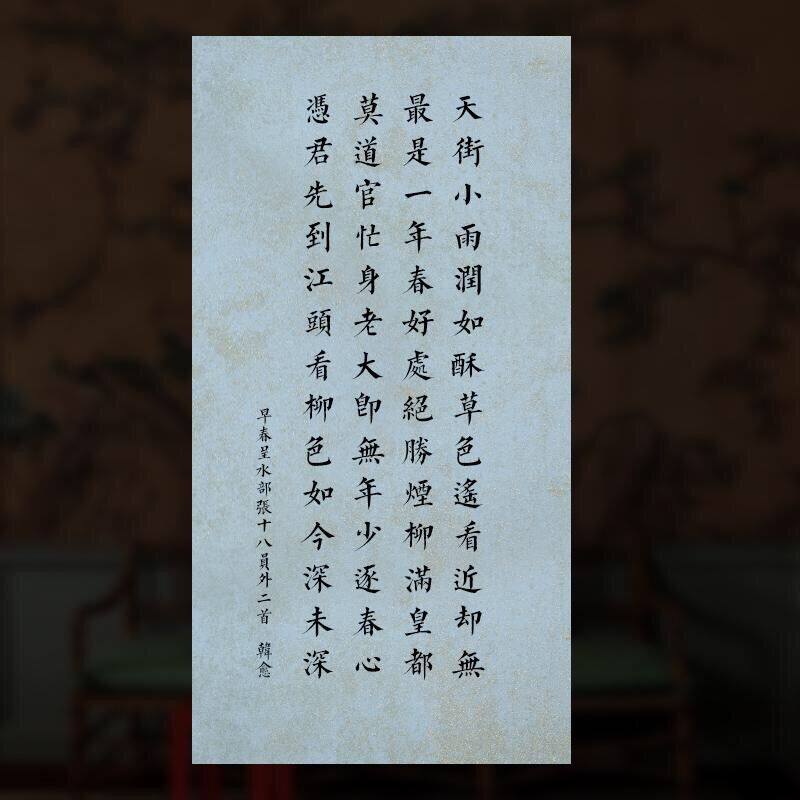 天街小雨潤如酥草色遙看近却無
最是一年春好處絕勝煙柳滿皇都
莫道官忙身老大即無年少逐春心
憑君先到江頭看柳色如今深未深
早春呈水部張十八員外二首 韓愈